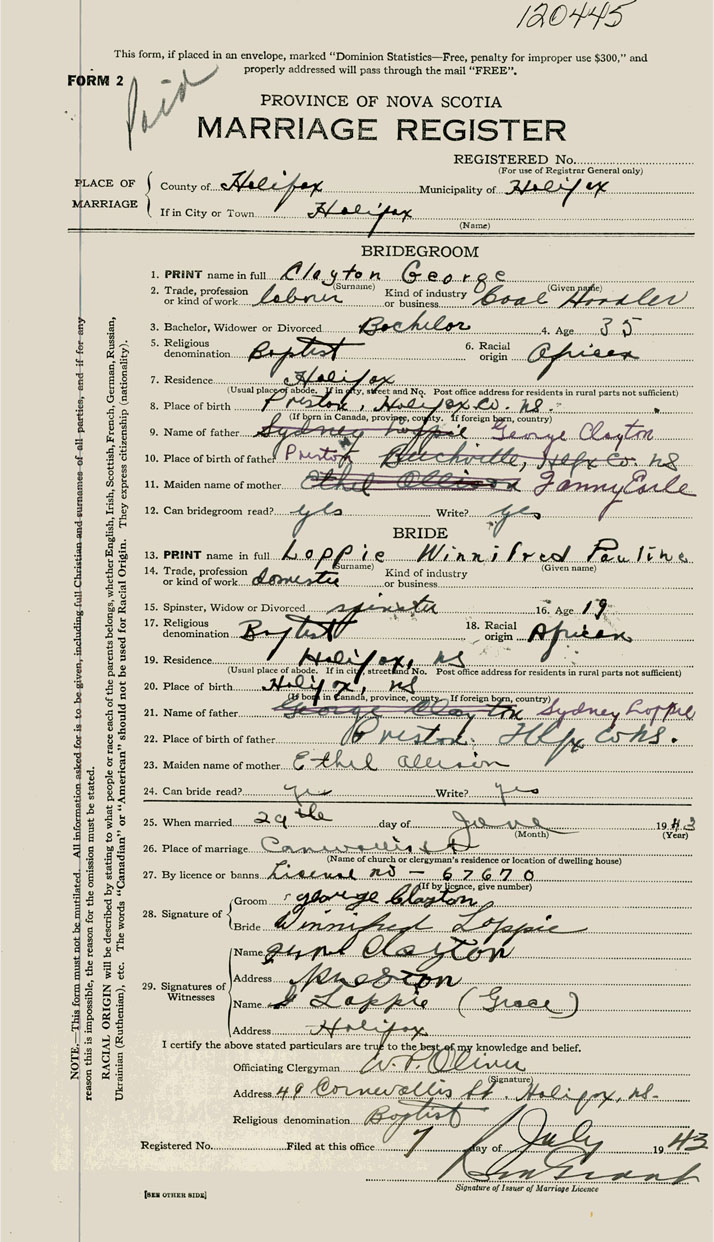 120445
This form, if placed in an envelope, marked "Dominion Statistics—Free, penalty for improper use $300," and
properly addressed will pass through the mail "FREE".
FORM 2
Paid
PROVINCE OF NOVA SCOTIA
MARRIAGE REGISTER
REGISTERED No.
(For use of Registrar General only)
PLACE OF MARRIAGE
County of Halifax Municipality of Halifax
If in City or Town Halifax
(Name)
BRIDEGROOM
1. PRINT name in full Clayton George
(Surname) (Given name)
2. Trade, profession or kind of work labourer Kind of industry or business Coal Handler
3. Bachelor, Widower or Divorced Bachelor 4. Age 35
5. Religious denomination Baptist 6. Racial origin African
7. Residence Halifax
(Usual place of abode. If in city, street and No. Post office address for residents in rural parts not sufficient)
8. Place of birth Preston, Halifax Co. NS.
(If born in Canada, province, county. If foreign born, country)
9. Name of father Sydney Loppie George Clayton
10. Place of birth of father Preston Beechville, Hlfx Co. NS
11. Maiden name of mother Ethel Allison Fanny Earle
12. Can bridegroom read? yes Write? yes
BRIDE
13. PRINT name in full Loppie Winnifred Pauline
(Surname) (Given name)
14. Trade, profession or kind of work domestic Kind of industry or business
15. Spinster, Widow or Divorced spinster 16. Age 19
17. Religious denomination Baptist 18. Racial origin African
19. Residence Halifax, NS
(Usual place of abode. If in city, street and No. Post office address for residents in rural parts not sufficient)
20. Place of birth Halifax, NS
(If born in Canada, province, county. If foreign born, country)
21. Name of father George Clayton Sydney Loppie
22. Place of birth of father Preston. Hlfx Co NS.
23. Maiden name of mother Ethel Allison
24. Can bride read? yes Write? yes
25. When married 29th day of June 1943
(Month) (Year)
26. Place of marriage Cornwallis St
(Name of church or clergyman's residence or location of dwelling house)
27. By licence or banns License no - 67670
(If by licence, give number)
28. Signature of
Groom george Clayton
Bride Winnifred Loppie
29. Signatures of Witnesses
Name Clayton
Address Preston
Name G Loppie (Grace)
Address Halifax
I certify the above stated particulars are true to the best of my knowledge and belief.
Officiating Clergyman W. P. Oliver
(Signature)
Address 49 Cornwallis St. Halifax, NS.
Religious denomination Baptist
Registered No. Filed at this office 7 day of July 1943
Signature of Issuer of Marriage Licence
[SEE OTHER SIDE]
NOTE.—This form must not be mutilated. All information asked for is to be given, including full Christian and surnames of all parties, and if for any
reason this is impossible, the reason for the omission must be stated.
RACIAL ORIGIN will be described by stating to what people or race each of the parents belongs, whether English, Irish, Scottish, French, German, Russian,
Ukrainian (Ruthenian), etc. The words "Canadian" or "American" should not be used for Racial Origin. They express citizenship (nationality).